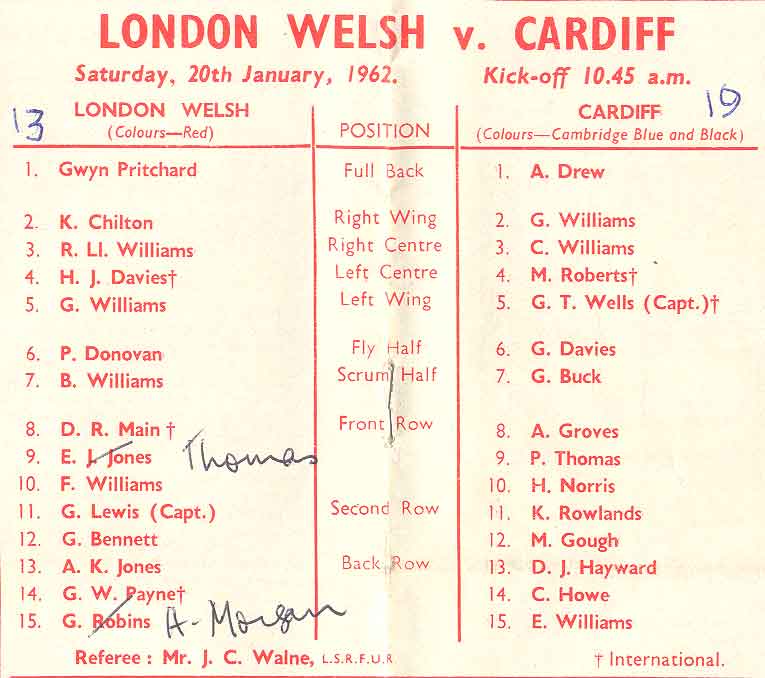 LONDON WELSH v. CARDIFF
Saturday, 20th January, 1962. Kick-off 10.45 a.m.
13 LONDON WELSH POSITION CARDIFF 19
(Colours—Red) (Colours—Cambridge Blue and Black)
1. Gwyn Pritchard Full Back 1. A. Drew
2. K. Chilton Right Wing 2. G. Williams
3. R. Ll. Williams Right Centre 3. C. Williams
4. H. J. Davies† Left Centre 4. M. Roberts†
5. G. Williams Left Wing 5. G. T. Wells (Capt.)†
6. P. Donovan Fly Half 6. G. Davies
7. B. Williams Scrum Half 7. G. Buck
8. D. R. Main † Front Row 8. A. Groves
9. E. J. Jones Thomas 9. P. Thomas
10. F. Williams 10. H. Norris
11. G. Lewis (Capt.) Second Row 11. K. Rowlands
12. G. Bennett 12. M. Gough
13. A. K. Jones Back Row 13. D. J. Hayward
14. G. W. Payne† 14. C. Howe
15. G. Robins A. Morgan 15. E. Williams
Referee : Mr. J. C. Walne, L.S.R.F.U.R † International.